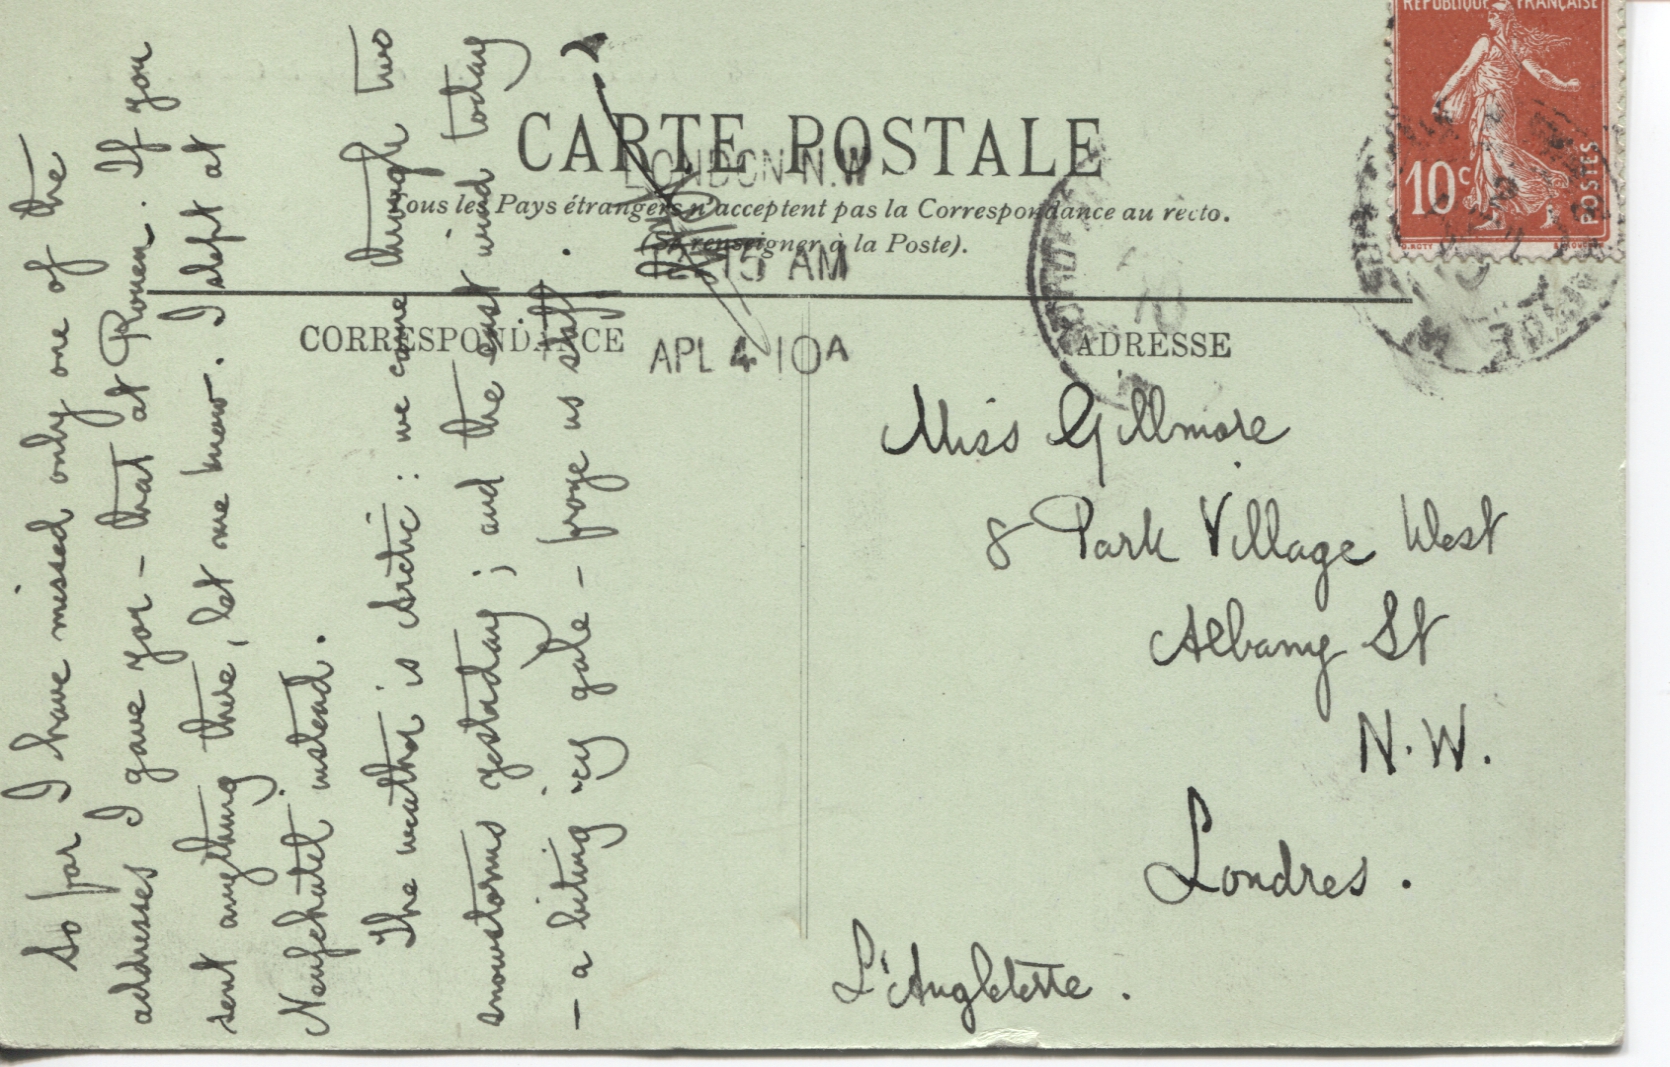 So far I have missed only one of the
addresses I gave you - that at Rouen. If you
sent anything there, let me know. I slept at
Neufchatel instead.
The weather is Arctic: we came through two
snowstorms yesterday; and the east wind today
- a biting icy gale - froze us stiff.
RÉPUBLIQUE FRANÇAISE
10c
POSTES
CARTE POSTALE
Tous les Pays étrangers n'acceptent pas la Correspondance au recto.
(Se renseigner à la Poste).
LONDON N.W
12.15 AM
APL 4 10A
CORRESPONDANCE
ADRESSE
Miss Gillmore
8 Park Village West
Albany St
N.W.
Londres.
L'Angleterre.